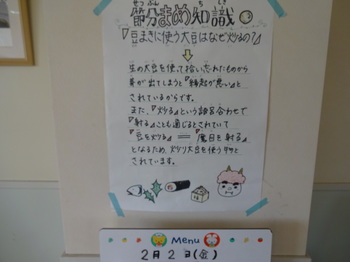 せつぶん ちしき
節分まめ知識
『豆まきに使う大豆はなぜ炒るの？』
生の大豆を使って拾い忘れたものから
芽が出てしまうと『縁起が悪い』と
されているからです。
また、『炒る』という語呂合わせで
『射る』ことも通じるとされていて
『豆を炒る』＝『魔目を射る』
となるため、炒り大豆を使う事が
されています。
Menu
2月2日(金)